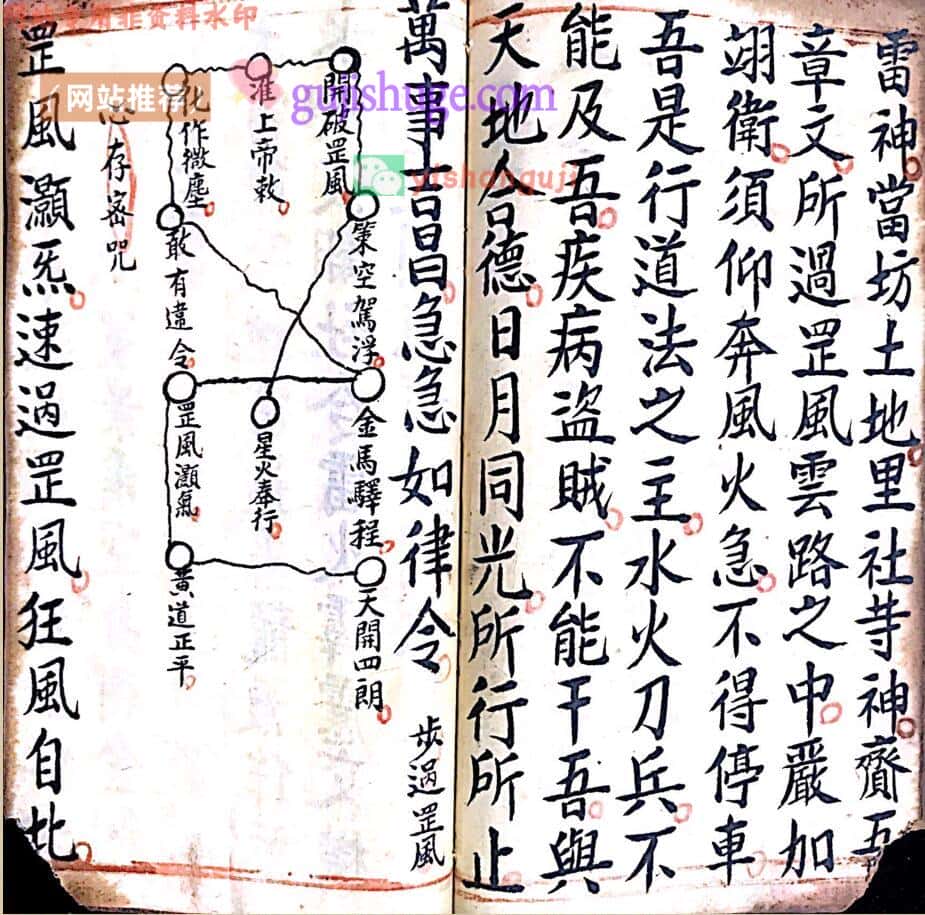 雷神。當坊土地。里社寺神。齎
章文。所過罡風雲路之中。嚴加
翊衛。須仰奔風火急。不得停車
吾是行道法之主。水火刀兵。不
能及吾。疾病盜賊。不能干吾。與
天地合德。日月同光。所行所止。
萬事吉昌。急急如律令。
步過罡風
開破罡風。
策空駕浮。
金馬驛程。
天開四朗。
淮上帝敕。
星火奉行。
化作微塵。
敢有違令。
罡風灝氣。
黃道正平。
心存密咒
罡風灝炁。速過罡風。狂風自北。
非资料水印
网站推荐
gujishuge.com
yishanguji